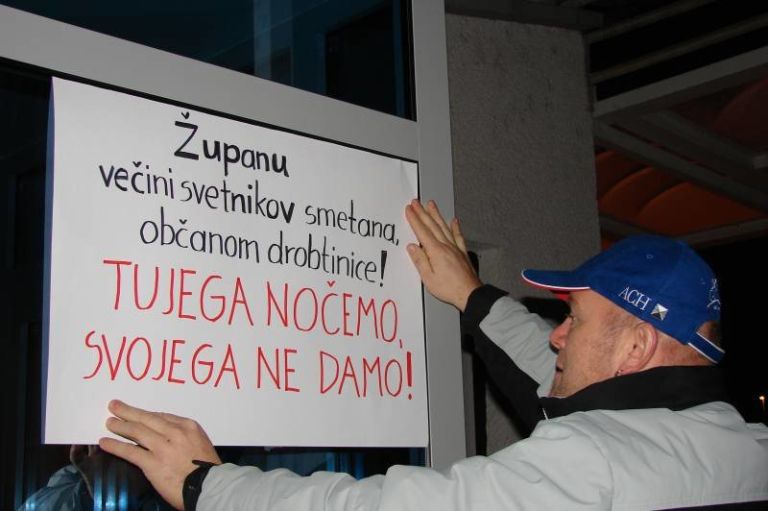 Županu
večini svetnikov smetana,
občanom drobtinice!
TUJEGA NOČEMO,
SVOJEGA NE DAMO!
ACH